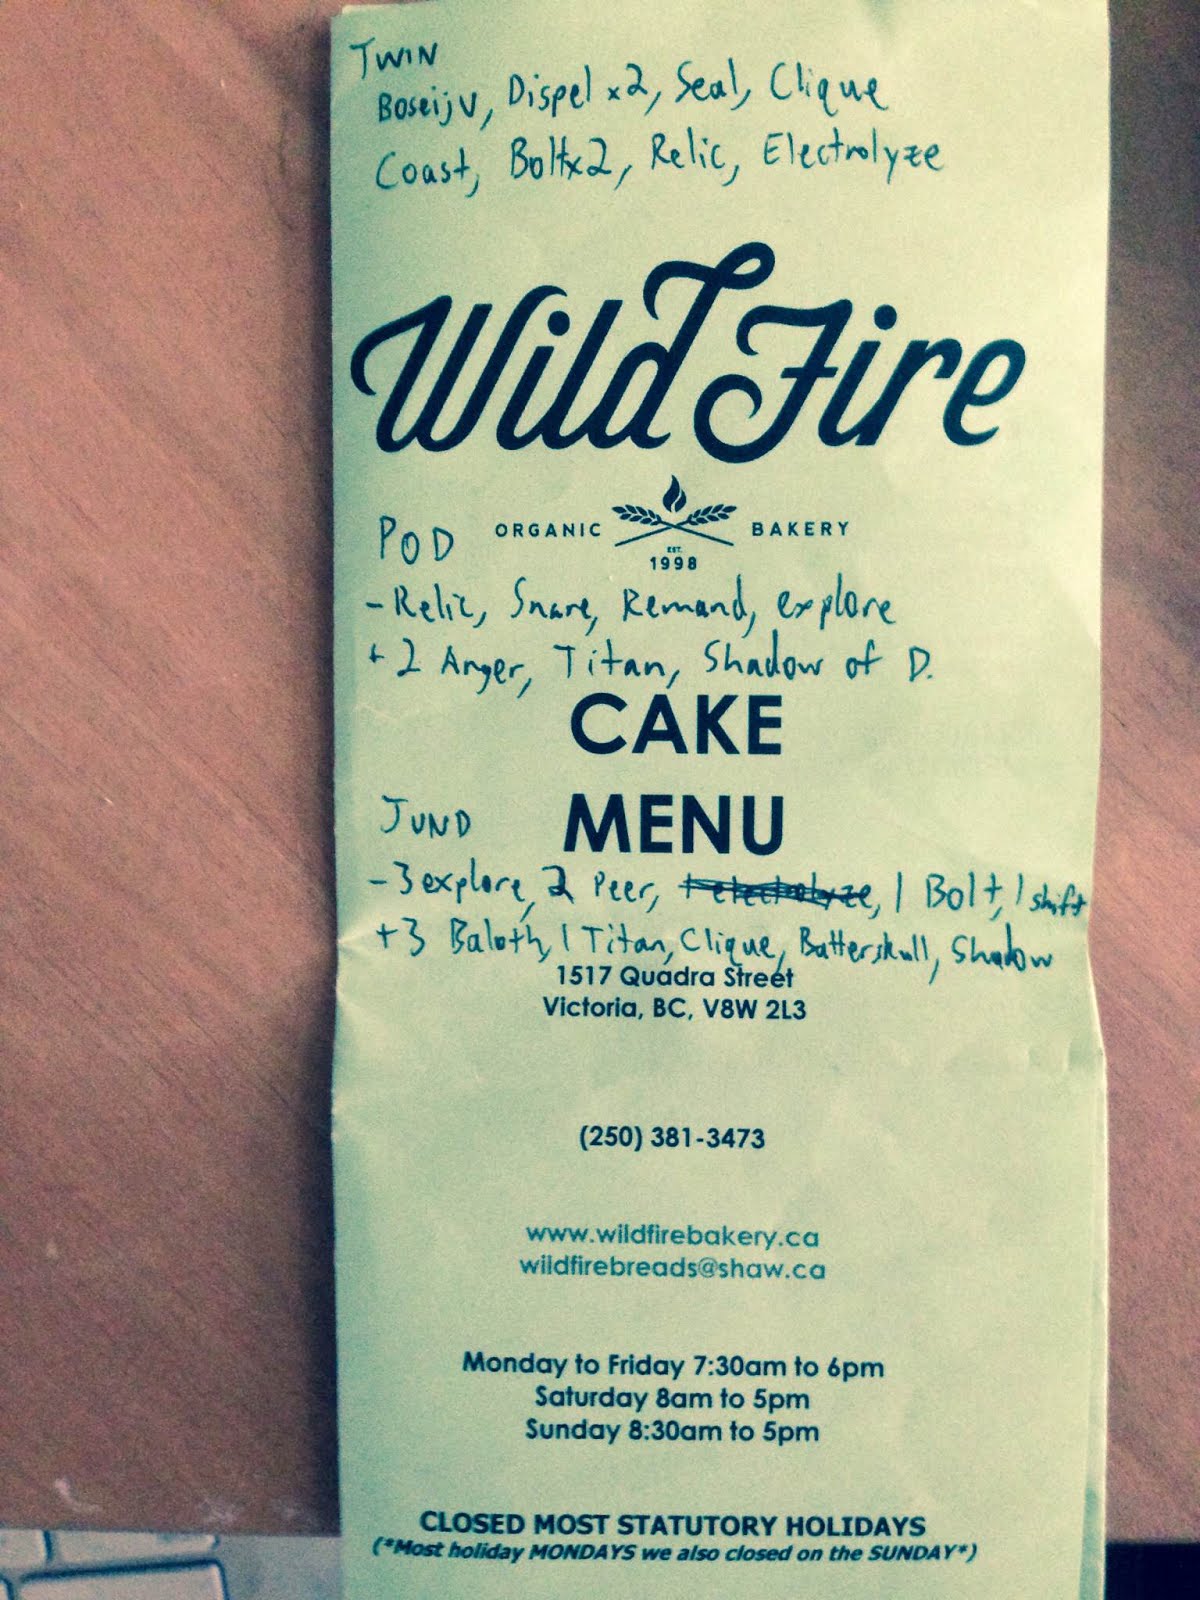 TWIN
Boseiju, Dispel x2, Seal, Clique
Coast, Boltx2, Relic, Electrolyze
Wild Fire
POD
ORGANIC BAKERY
EST.
1998
- Relic, Snare, Remand, explore
+ 2 Anger, Titan, Shadow of D.
CAKE
MENU
JUND
- 3 explore, 2 Peer, 1 electrolyze, 1 Bolt, 1 shift
+ 3 Baloth, 1 Titan, Clique, Batterskull, Shadow
1517 Quadra Street
Victoria, BC, V8W 2L3
(250) 381-3473
www.wildfirebakery.ca
wildfirebreads@shaw.ca
Monday to Friday 7:30am to 6pm
Saturday 8am to 5pm
Sunday 8:30am to 5pm
CLOSED MOST STATUTORY HOLIDAYS
(*Most holiday MONDAYS we also closed on the SUNDAY*)